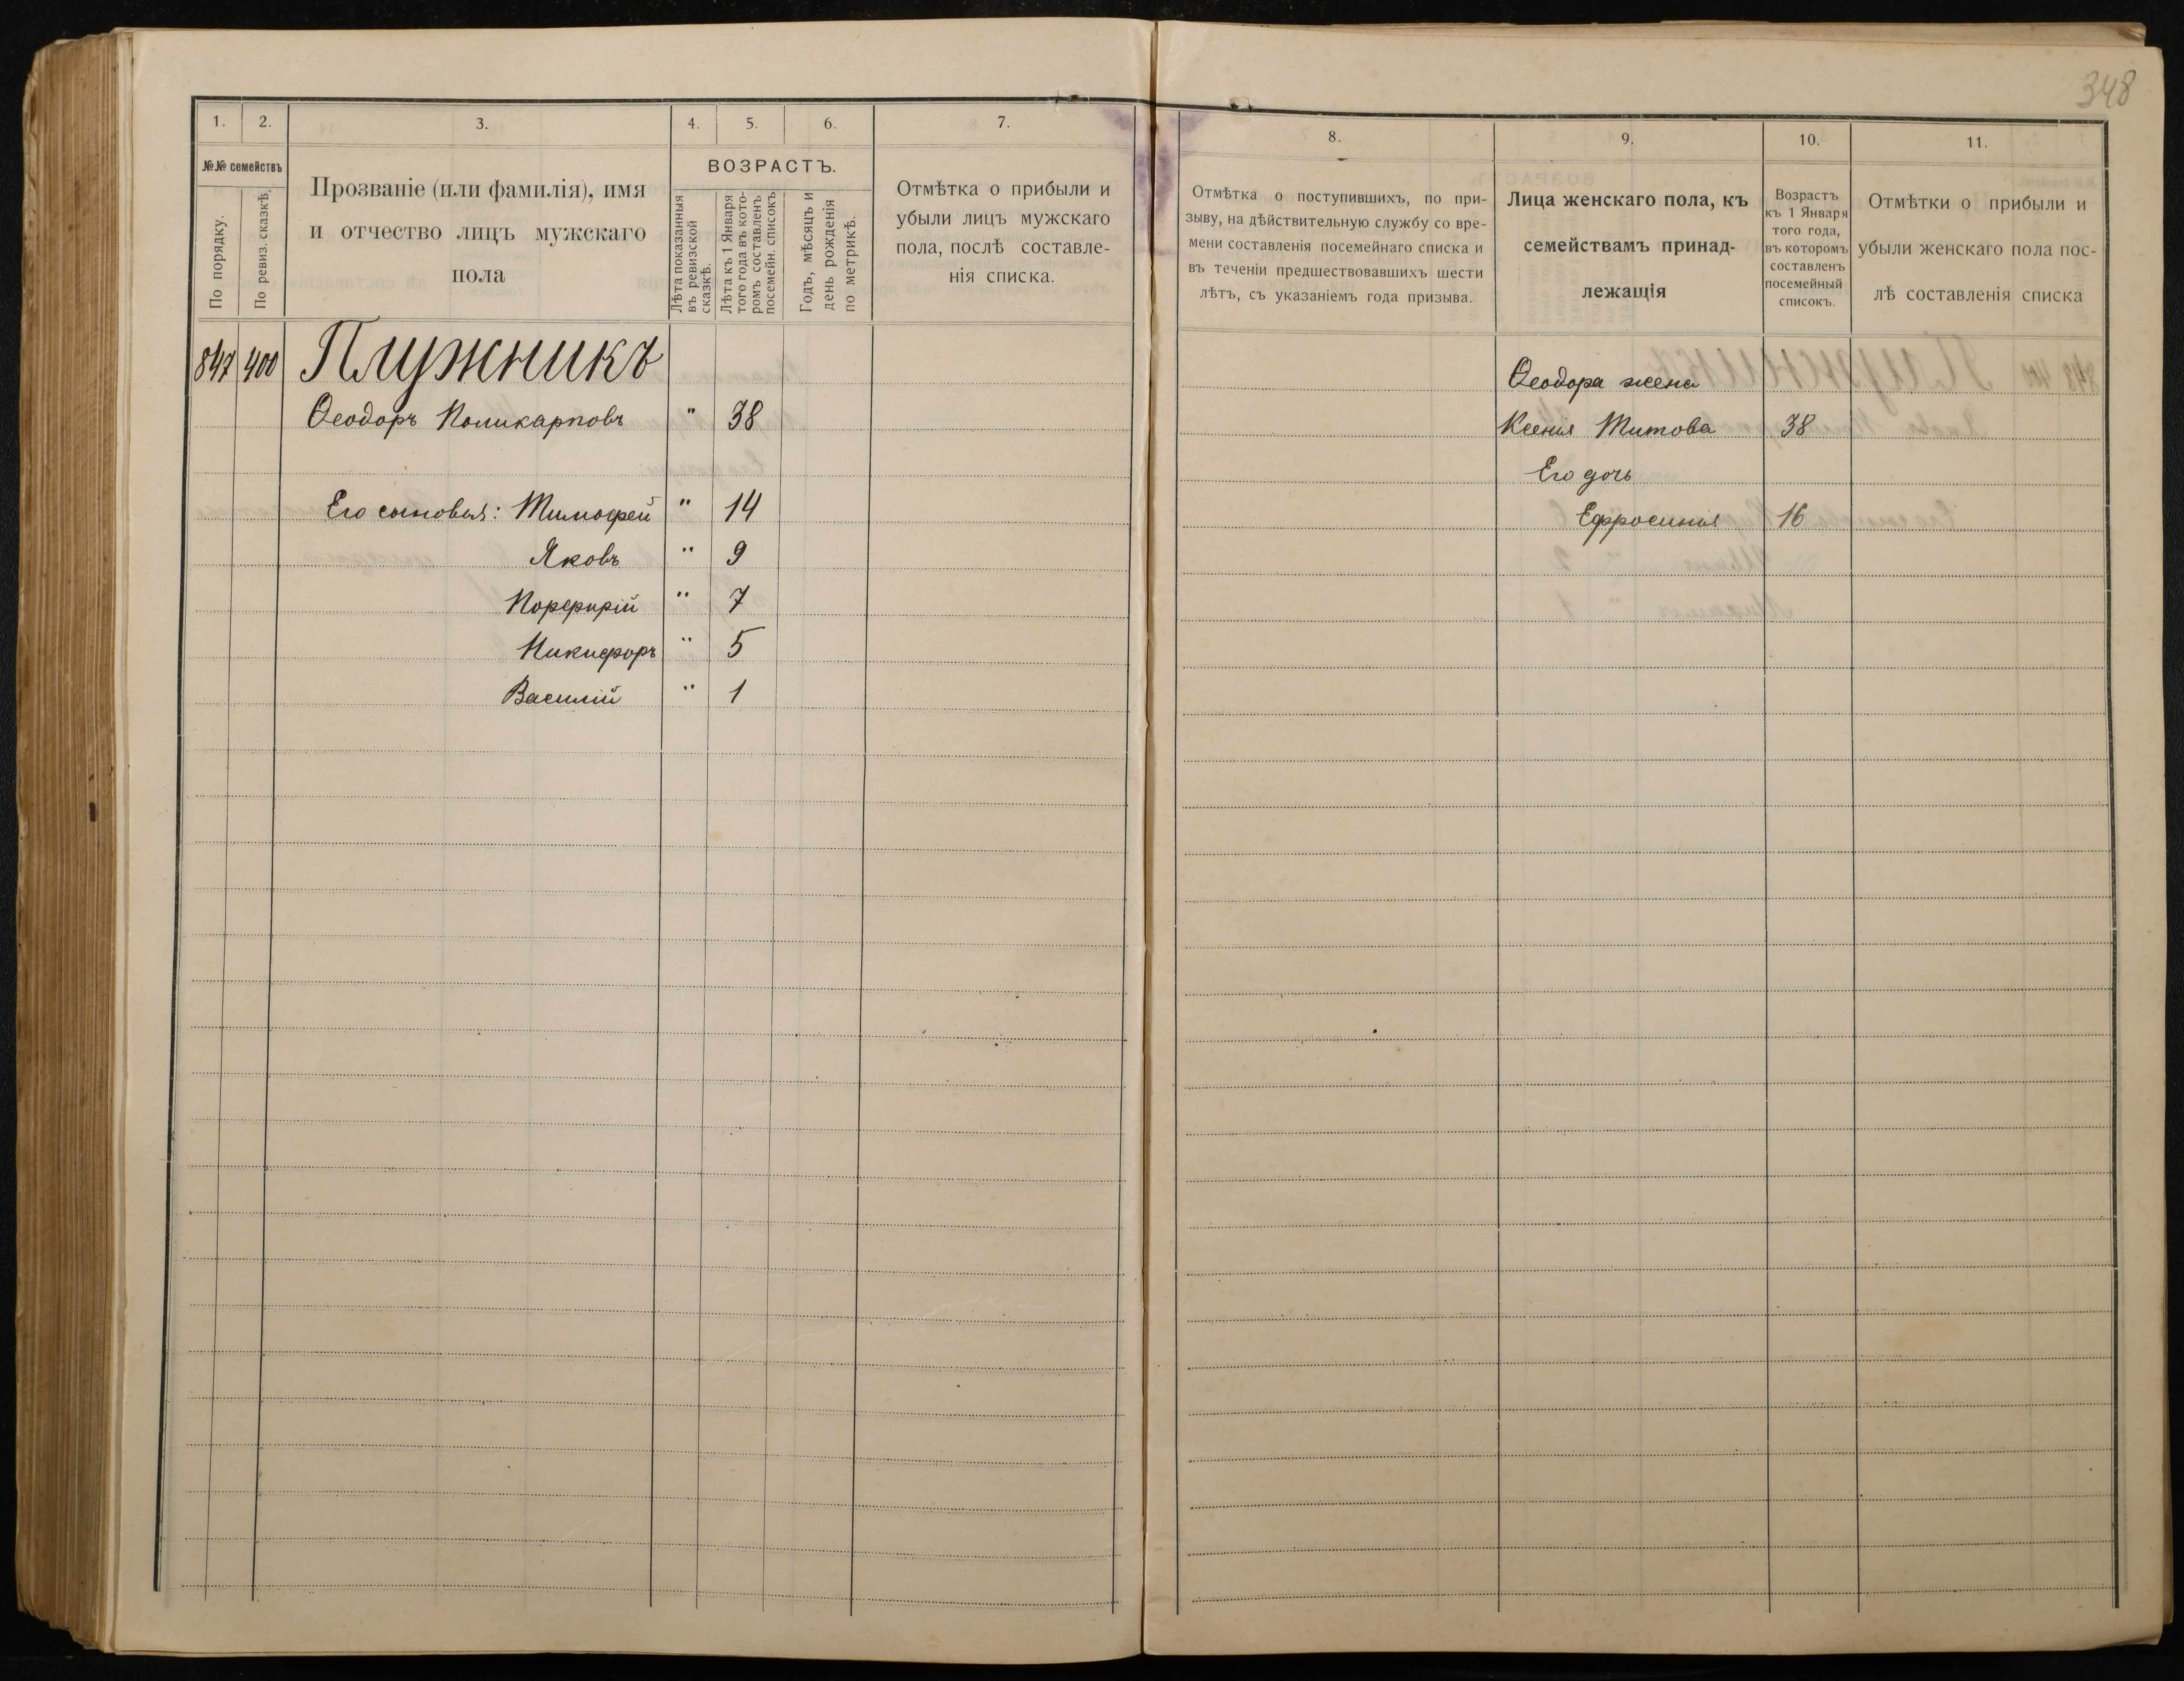 348
1. 2. 3. 4. 5. 6. 7.
№№ семействъ
По порядку.
По ревиз. сказкѣ.
Прозваніе (или фамилія), имя
и отчество лицъ мужскаго
пола
ВОЗРАСТЪ.
Лѣта показанныя
въ ревизской
сказкѣ.
Лѣта къ 1 Января
того года въ кото-
ромъ составленъ
посемейн. списокъ
Годъ, мѣсяцъ и
день рожденія
по метрикѣ.
Отмѣтка о прибыли и
убыли лицъ мужскаго
пола, послѣ составле-
нія списка.
847 400 Плужникъ
Ѳеодоръ Поликарповъ " 38
Его сыновья: Тимофей " 14
Яковъ " 9
Порфирій " 7
Никифоръ " 5
Василій " 1
8. 9. 10. 11.
Отмѣтка о поступившихъ, по при-
зыву, на дѣйствительную службу со вре-
мени составленія посемейнаго списка и
въ теченіи предшествовавшихъ шести
лѣтъ, съ указаніемъ года призыва.
Лица женскаго пола, къ
семействамъ принад-
лежащія
Возрастъ
къ 1 Января
того года,
въ которомъ
составленъ
посемейный
списокъ.
Отмѣтки о прибыли и
убыли женскаго пола пос-
лѣ составленія списка
Ѳеодора жена
Ксенія Титова 38
Его дочь
Ефросинія 16